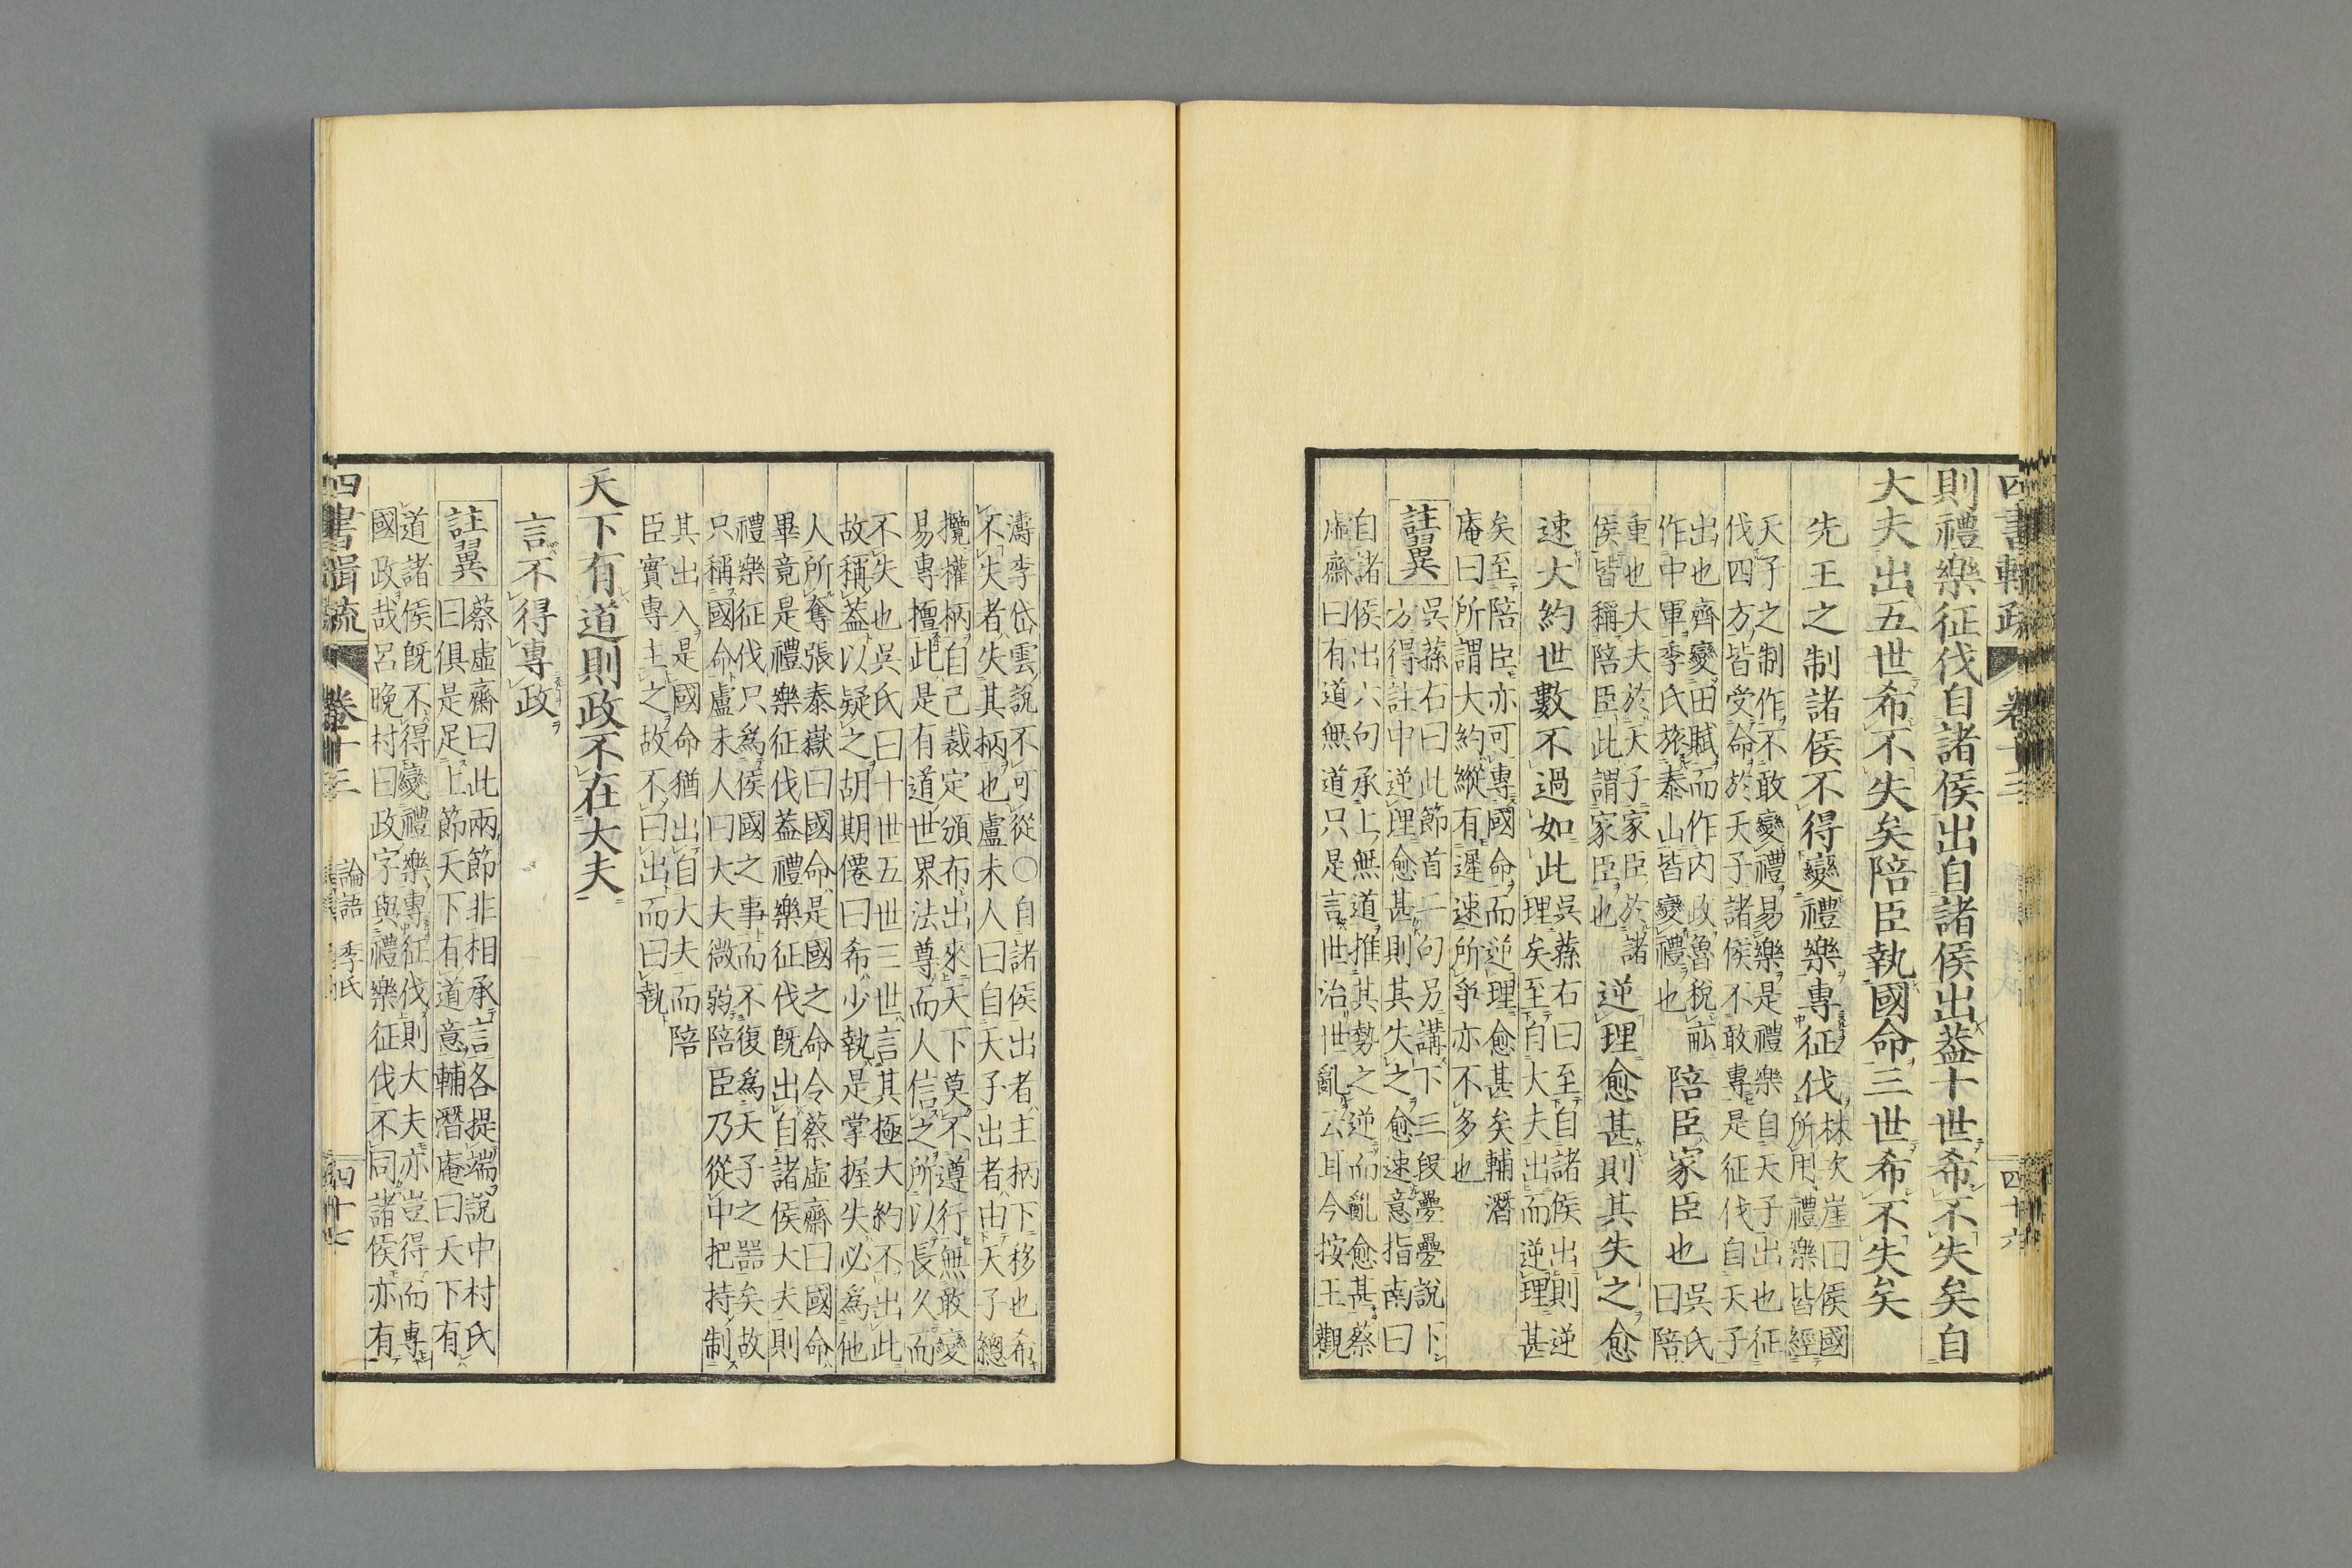 四書輯疏 卷十三 四十六
則禮樂征伐自諸侯出自諸侯出蓋十世希不失矣自
大夫出五世希不失矣陪臣執國命三世希不失矣
先王之制諸侯不得變禮樂專征伐林次崖曰侯國
所用禮樂皆經
天子之制作不敢變禮易樂是禮樂自天子出也征
伐四方皆受命於天子諸侯不敢專是征伐自天子
出也齊變田賦而作內政魯稅畝
作中軍季氏旅泰山皆變禮也
陪臣家臣也吳氏
曰陪
重也大夫於天子家臣於諸
侯皆稱陪臣此謂家臣也
逆理愈甚則其失之愈
速大約世數不過如此吳蓀右曰至自諸侯出則逆
理矣至自大夫出而逆理甚
矣至陪臣亦可專國命而逆理愈甚矣輔潛
庵曰所謂大約縱有遲速所爭亦不多也
註翼
吳蓀右曰此節首二句另講下三段疊疊說下
方得註中逆理愈甚則其失之愈速意指南曰
自諸侯出六句承上無道推其勢之逆而亂愈甚蔡
虛齋曰有道無道只是言世治世亂云耳今按王觀
濤李岱雲說不可從○自諸侯出者主柄下移也希
不失者失其柄也盧未人曰自天子出者由天子總
攬權柄自己裁定頒布出來天下莫不遵行無敢變
易專擅此是有道世界法尊而人信之所以長久而
不失也吳氏曰十世五世三世言其極大約不出此
故稱蓋以疑之胡期僊曰希少執是掌握失必為他
人所奪張泰嶽曰國命是國之命令蔡虛齋曰國命
畢竟是禮樂征伐蓋禮樂征伐既出自諸侯大夫則
禮樂征伐只為侯國之事而不復為天子之器矣故
只稱國命盧未人曰大夫微弱陪臣乃從中把持制
其出入是國命猶出自大夫而陪
臣實專主之故不曰出而曰執
天下有道則政不在大夫
言不得專政
註翼
蔡虛齋曰此兩節非相承言各提端說中村氏
曰俱是足上節天下有道意輔潛庵曰天下有
道諸侯既不得變禮樂專征伐則大夫亦豈得而專
國政哉呂晚村曰政字與禮樂征伐不同諸侯亦有
四書輯疏 卷十三 論語 季氏 四十七